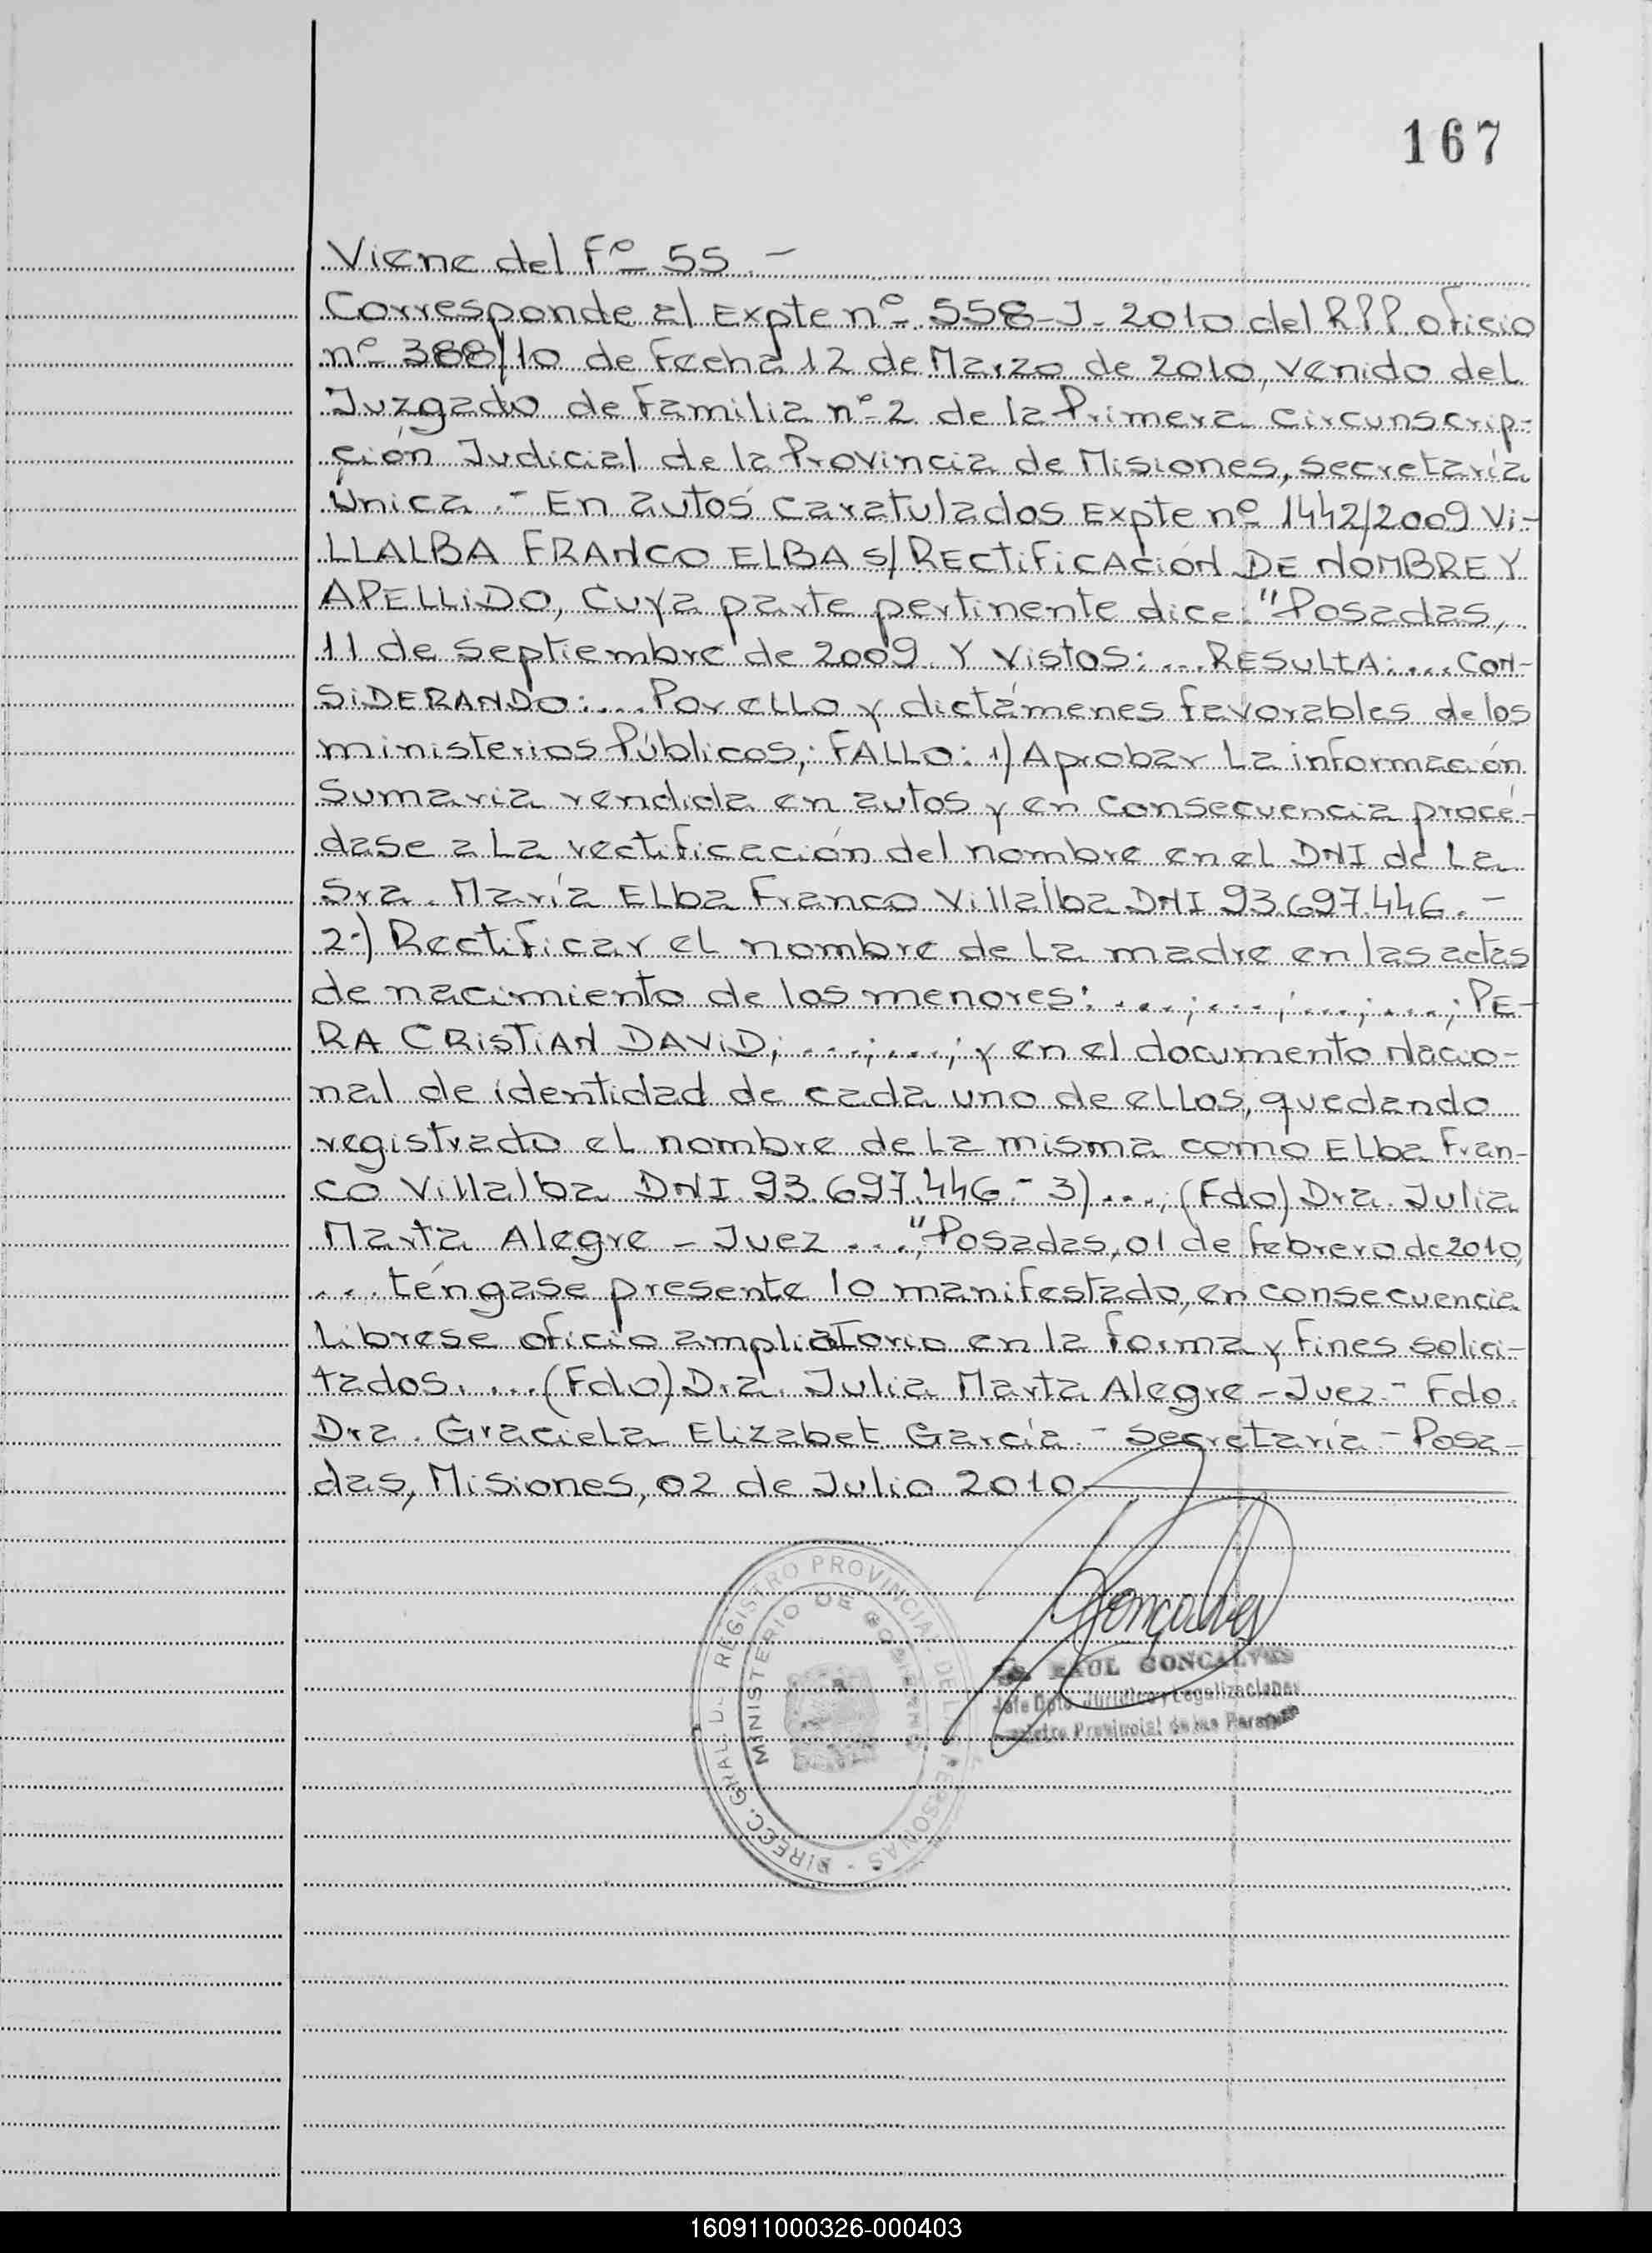 167
Viene del Fº 55.-
Corresponde al Expte nº 558-J-2010 del RPP oficio
nº 388/10 de fecha 12 de Marzo de 2010, venido del
Juzgado de Familia nº 2 de la Primera Circunscrip-
ción Judicial de la Provincia de Misiones, Secretaría
Única.- En autos Caratulados Expte nº 1442/2009 Vi-
LLALBA FRANCO ELBA s/ RECTIFICACIÓN DE NOMBRE Y
APELLIDO, Cuya parte pertinente dice: "Posadas,
11 de Septiembre de 2009. Y Vistos:... RESULTA:... CON-
SIDERANDO:... Por ello y dictámenes favorables de los
ministerios Públicos; FALLO: 1) Aprobar La información
Sumaria rendida en autos y en consecuencia procé-
dase a La rectificación del nombre en el DNI de La
Sra. María Elba Franco Villalba DNI 93.697.446.-
2-) Rectificar el nombre de La madre en las actas
de nacimiento de los menores: ...;...;...;...; PE-
RA CRISTIAN DAVID; ...;...; y en el documento Nacio-
nal de identidad de cada uno de ellos, quedando
registrado el nombre de La misma como Elba Fran-
co Villalba DNI 93.697.446 - 3)..., (Fdo) Dra. Julia
Marta Alegre - Juez ...", "Posadas, 01 de febrero de 2010,
... téngase presente lo manifestado, en consecuencia
Librese oficio ampliatorio en la forma y fines solici-
tados. ... (Fdo) Dra. Julia Marta Alegre - Juez - Fdo.
Dra. Graciela Elizabet García - Secretaría - Posa-
das, Misiones, 02 de Julio 2010
DIRECC. GRAL. DEL REGISTRO PROVINCIAL DE LAS PERSONAS -
MINISTERIO DE GOBIERNO
Gonçalves
RAUL GONCALVES
Jefe Dpto. Jurídico y Legalizaciones
Registro Provincial de las Personas
160911000326-000403